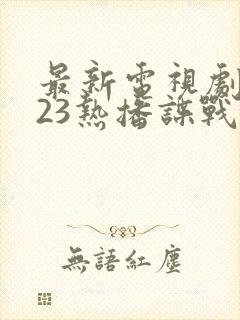 最新電視劇
23熱播諜戰
無語紅塵